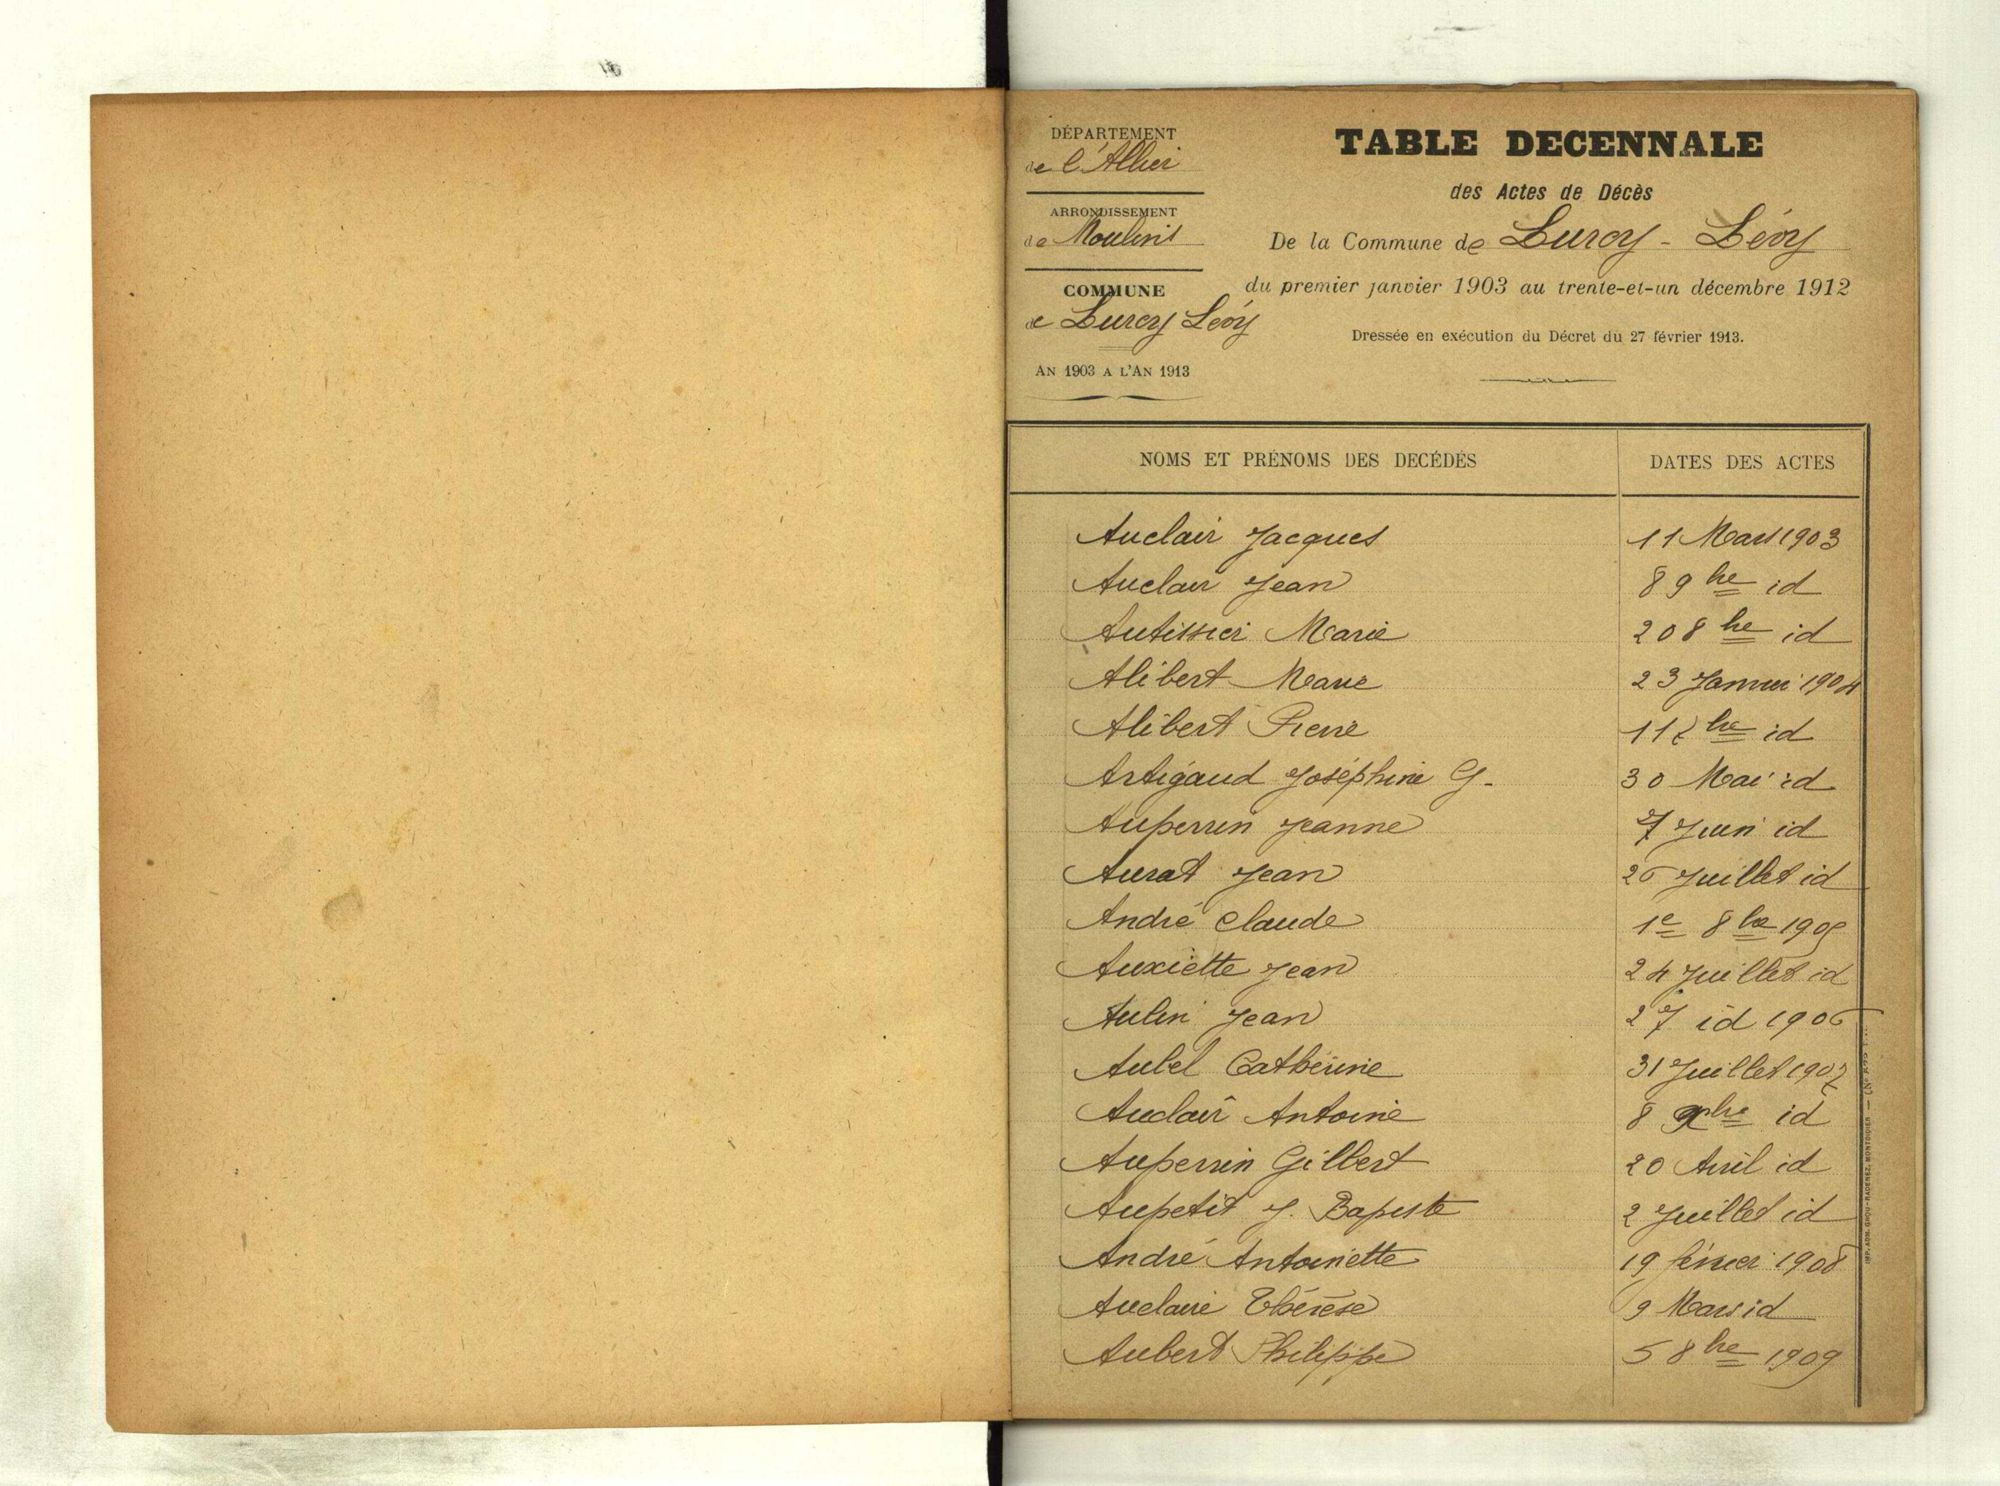 DÉPARTEMENT
de l'Allier
ARRONDISSEMENT
de Moulins
COMMUNE
de Lurcy Lévy
AN 1903 A L'AN 1913
TABLE DECENNALE
des Actes de Décès
De la Commune de Lurcy - Lévy
du premier janvier 1903 au trente-et-un décembre 1912
Dressée en exécution du Décret du 27 février 1913.
NOMS ET PRÉNOMS DES DECÉDÉS DATES DES ACTES
Auclair Jacques 11 Mars 1903
Auclair Jean 8 9bre id
Autissier Marie 20 8bre id
Alibert Marie 23 Janvier 1904
Alibert Pierre 11 bre id
Artigaud Joséphine G. 30 Mai id
Auperrin Jeanne 7 Juin id
Aurat Jean 26 Juillet id
André Claude 1e 8bre 1905
Auxiette Jean 24 Juillet id
Aulin Jean 27 id 1906
Aubel Catherine 31 Juillet 1907
Auclair Antoine 8 9bre id
Auperrin Gilbert 20 Avril id
Aupetit J. Bapiste 2 Juillet id
André Antoinette 19 février 1908
Auclaire Thérèse 9 Mars id
Aubert Philippe 5 8bre 1909